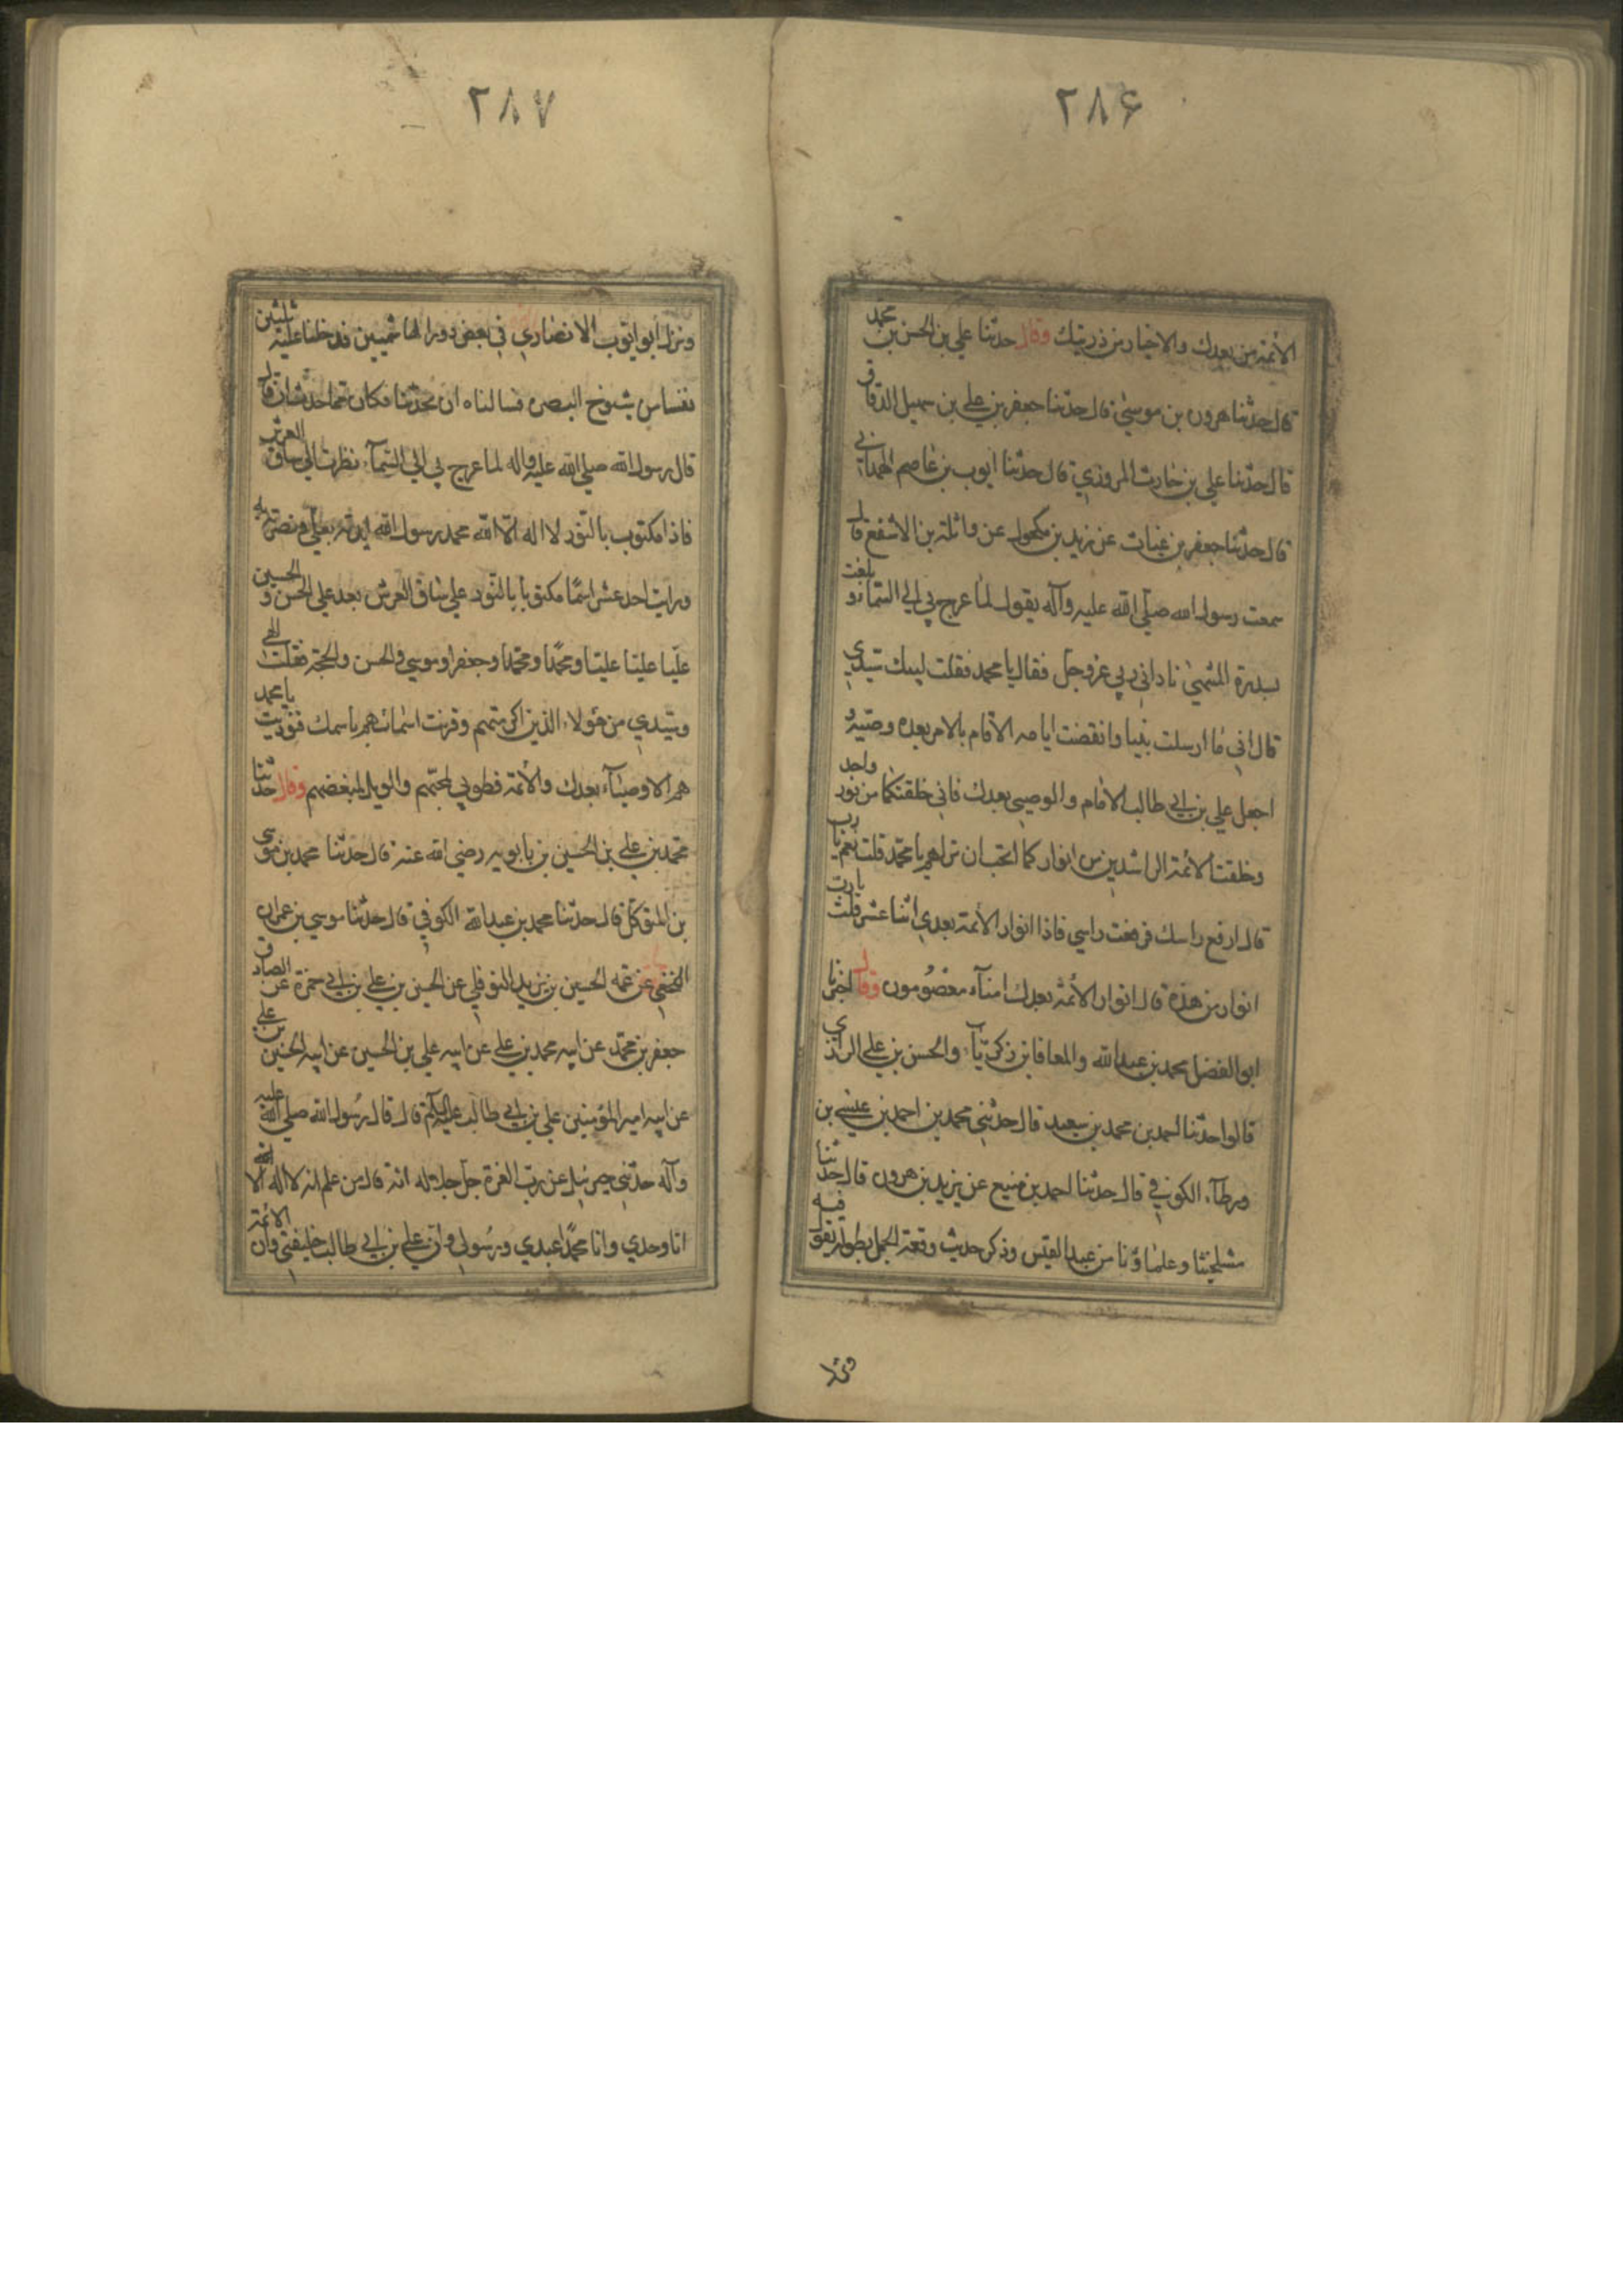 ۲۸۶
الأئمة من بعدك والاخيار من ذريتك وقال حدثنا علي بن الحسن بن محمد
قال حدثنا هرون بن موسى قال حدثنا جعفر بن علي بن سهيل الدقاق
قال حدثنا علي بن حارث المروزي قال حدثنا ايوب بن عاصم الهمداني
قال حدثنا جعفر بن غياث عن يزيد بن مكحول عن واثلة بن الاشفع قال
سمعت رسول الله صلى الله عليه وآله يقول لما عرج بي الى السماء و بلغت
سدرة المنتهى ناداني ربي عز وجل فقال يا محمد فقلت لبيك سيدي
قال اني ما ارسلت نبيا وانقضت ايامه الا قام بالامر بعده وصيه و
اجعل علي بن ابي طالب الامام والوصي بعدك فاني خلقتكما من نور واحد
وخلقت الأئمة الراشدين من انواركما اتحب ان تراهم يا محمد قلت نعم يا رب
قال ارفع راسك فرفعت راسي فاذا انوار الأئمة بعدي اثنا عشر قلت يا رب
انوار من هذه قال انوار الأئمة بعدك امناء معصومون وقال اخبرنا
ابو الفضل محمد بن عبد الله والمعافا بن زكريا والحسن بن علي الرازي
قالوا حدثنا احمد بن محمد بن سعيد قال حدثني محمد بن احمد بن عيسى بن
ورطاء الكوفي قال حدثنا احمد بن منيع عن يزيد بن هرون قال حدثنا
مشايخنا وعلماؤنا من عبد القيس وذكر حديث وقعة الجمل بطوله يقول فيه
ونزل
۲۸۷
ونزل ابو ايوب الانصاري في بعض دور الهاشميين فدخلنا عليه ثلثين
نفسا من شيوخ البصره فسالناه ان يحدثنا فكان مما حدثنا ان قال
قال رسول الله صلى الله عليه واله لما عرج بي الى السماء نظرت الى ساق العرش
فاذا مكتوب بالنور لا اله الا الله محمد رسول الله ايدته بعلي ونصرته به
ورايت احد عشر اسما مكتوبا بالنور على ساق العرش بعد علي الحسن و الحسين
عليا عليا عليا ومحمدا ومحمدا وجعفرا وموسى والحسن والحجة فقلت الهي
وسيدي من هؤلاء الذين اكرمتهم وقرنت اسمائهم باسمك فنوديت يا محمد
هم الاوصياء بعدك والأئمة فطوبي لمحبهم والويل لمبغضهم وقال حدثنا
محمد بن علي بن الحسين بن بابويه رضي الله عنه قال حدثنا محمد بن موسى
بن المتوكل قال حدثنا محمد بن عبد الله الكوفي قال حدثنا موسى بن عمران
النخعي عن عمه الحسين بن يزيد النوفلي عن الحسن بن علي بن ابي حمزة عن الصادق
جعفر بن محمد عن ابيه محمد بن علي عن ابيه علي بن الحسين عن ابيه الحسين بن علي
عن ابيه امير المؤمنين علي بن ابي طالب عليهم السلام قال قال رسول الله صلى الله عليه
وآله حدثني جبرئيل عن رب العزة جل جلاله انه قال من علم انه لا اله الا
انا وحدي وانا محمدا عبدي ورسولي وان علي بن ابي طالب خليفتي وان الأئمة